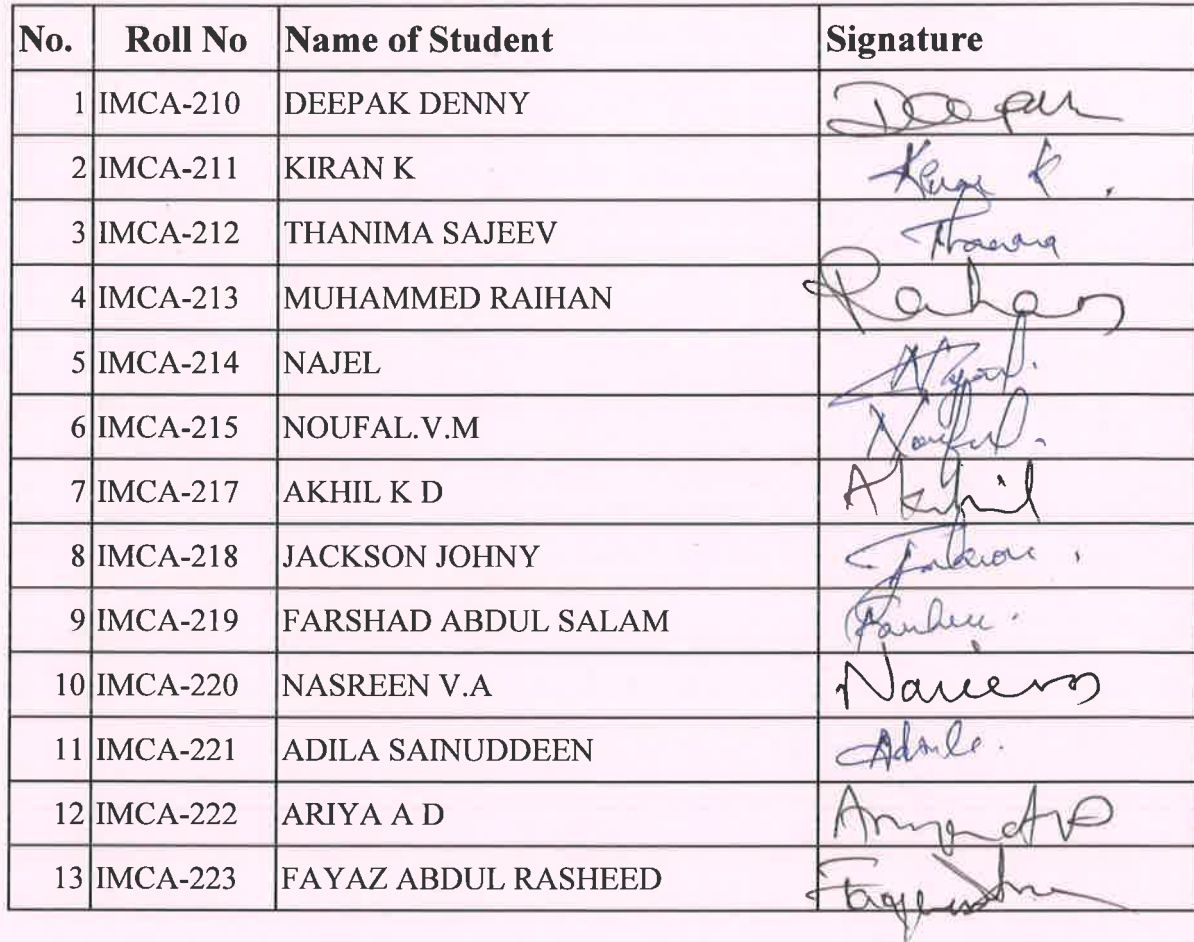 No. Roll No Name of Student Signature
1 IMCA-210 DEEPAK DENNY Deepak
2 IMCA-211 KIRAN K Kiran K.
3 IMCA-212 THANIMA SAJEEV
4 IMCA-213 MUHAMMED RAIHAN Raihan
5 IMCA-214 NAJEL
6 IMCA-215 NOUFAL.V.M Noufal.
7 IMCA-217 AKHIL K D Akhil
8 IMCA-218 JACKSON JOHNY
9 IMCA-219 FARSHAD ABDUL SALAM
10 IMCA-220 NASREEN V.A
11 IMCA-221 ADILA SAINUDDEEN
12 IMCA-222 ARIYA A D
13 IMCA-223 FAYAZ ABDUL RASHEED